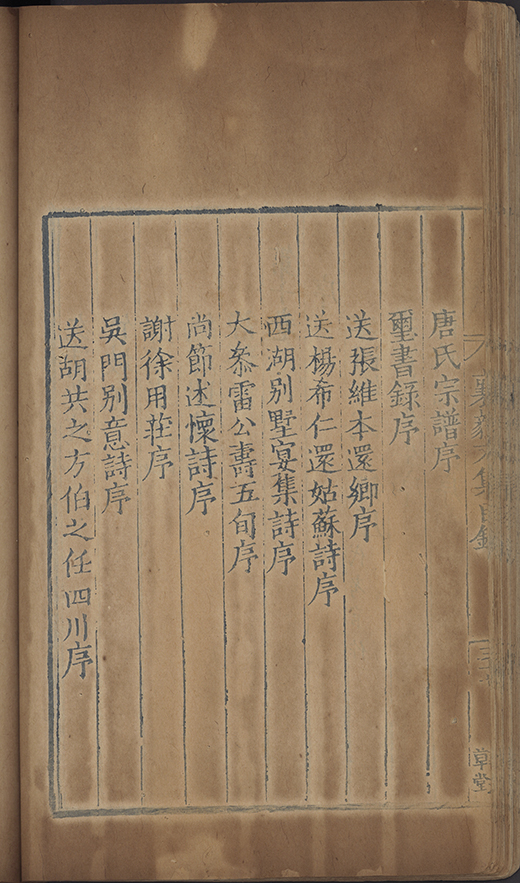 集目錄
草堂
唐氏宗譜序
璽書錄序
送張維本還鄉序
送楊希仁還姑蘇詩序
西湖别墅宴集詩序
大叅雷公壽五旬序
尚節述懷詩序
謝徐用莊序
吳門别意詩序
送胡共之方伯之任四川序